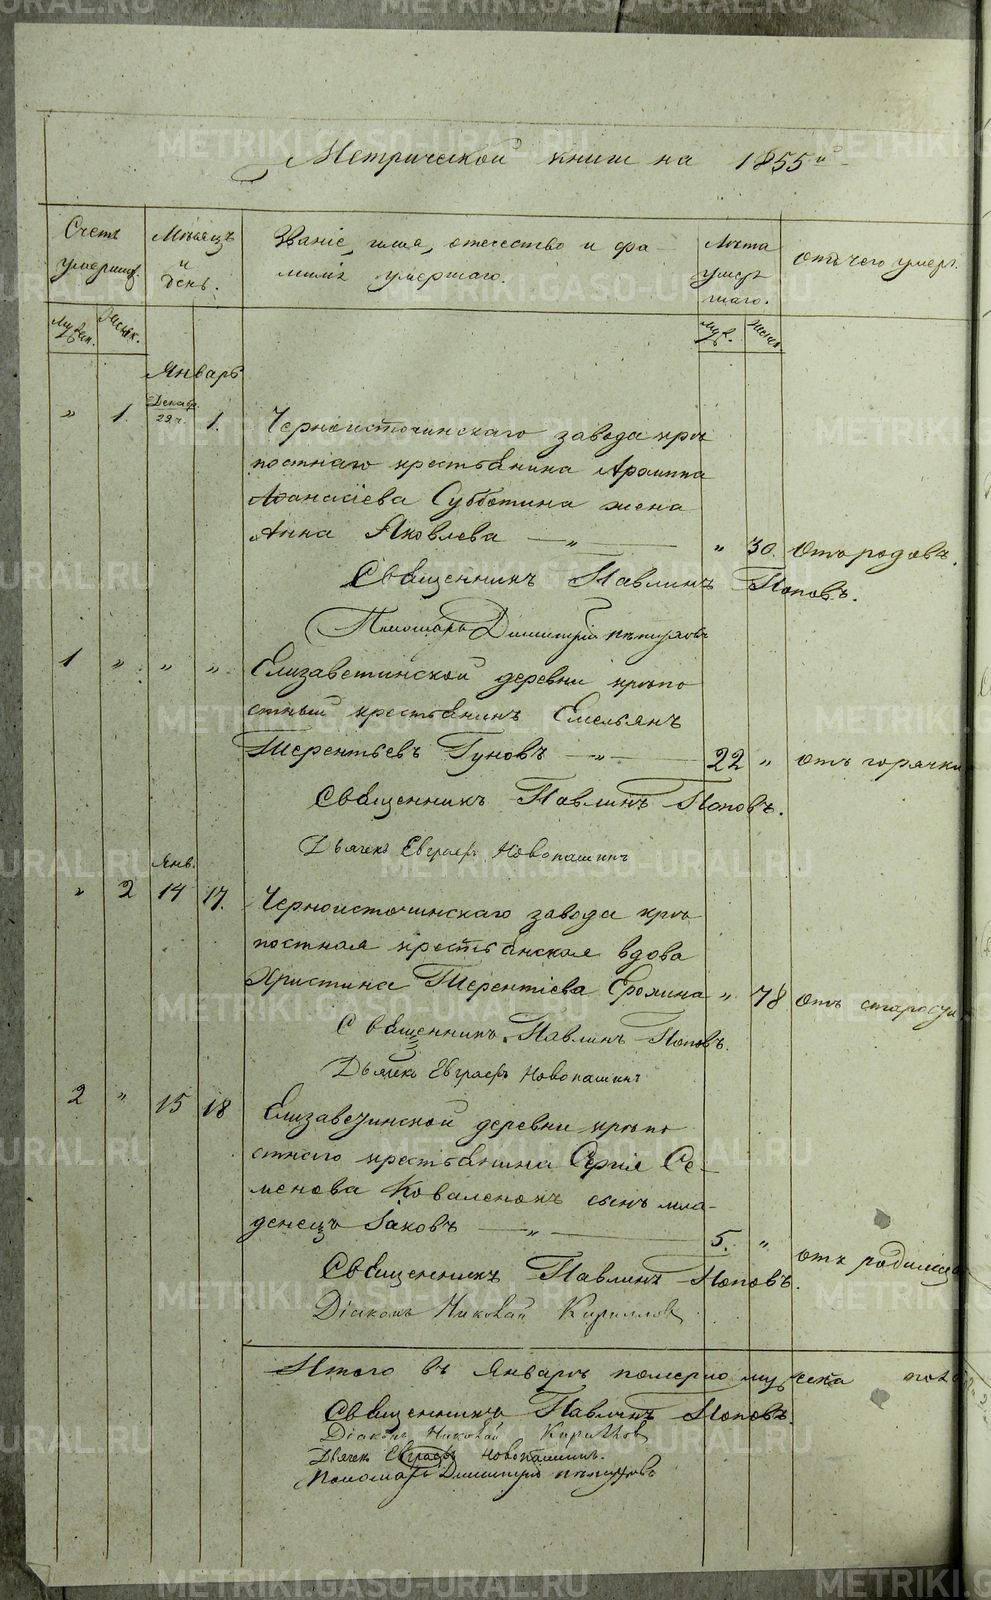 Метрической книги на 1855й
Счетъ умершихъ.
Мѣсяцъ и день.
Званіе, имя, отечество и фа-
миліѧ умершаго.
Лѣта умер-
шаго.
отъ чего умеръ.
Муж. Женск.
Муж. Женск.
Январь
" 1. Декабр. 29 ч. 1. Черноисточинскаго завода крѣ
постнаго крестьянина Архиппа
Афанасіева Субботина жена
Анна Яковлева — " — " 30. Отъ родовъ.
Священникъ Павлинъ Поповъ.
Пономарь Димитрій
1 " " " Елизаветинской деревни крѣпо
стный крестьянинъ Емельянъ
Терентьевъ Гуновъ — " — 22 " отъ горячки
Священникъ Павлинъ Поповъ.
Дьячекъ Евграфъ Новопашинъ
Янв.
" 2 14 17. Черноисточинскаго завода крѣ
постная крестьянская вдова
Христина Терентіева Еромина " 78 отъ старости
Священникъ Павлинъ Поповъ.
Дьячекъ Евграфъ Новопашинъ
2 " 15 18 Елизаветинской деревни крѣпо
стнаго крестьянина Сергія Се-
менова Коваленокъ сынъ мла-
денецъ Іаковъ — " — 5. " отъ родимца
Священникъ Павлинъ Поповъ.
Діаконъ Николай Кирилловъ
Итого въ Январѣ померло мужеска пола
Священникъ Павлинъ Поповъ.
Діаконъ Николай Кирилловъ
Дьячекъ Евграфъ Новопашинъ.
Пономарь Димитрій
METRIKI.GASO-URAL.RU